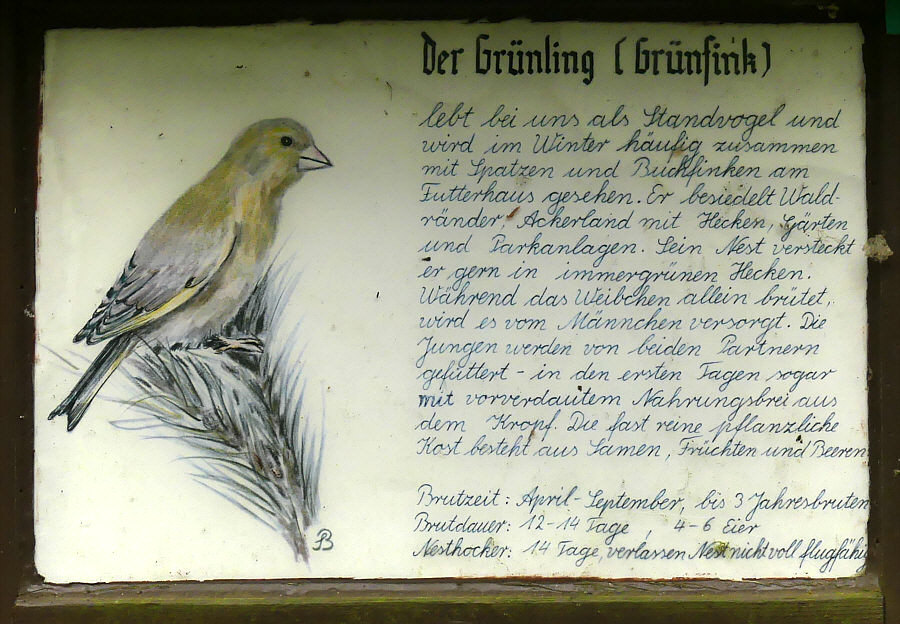 Der Grünling (Grünfink)
lebt bei uns als Standvogel und
wird im Winter häufig zusammen
mit Spatzen und Buchfinken am
Futterhaus gesehen. Er besiedelt Wald-
ränder, Ackerland mit Hecken, Gärten
und Parkanlagen. Sein Nest versteckt
er gern in immergrünen Hecken.
Während das Weibchen allein brütet,
wird es vom Männchen versorgt. Die
Jungen werden von beiden Partnern
gefüttert - in den ersten Tagen sogar
mit vorverdautem Nahrungsbrei aus
dem Kropf. Die fast reine pflanzliche
Kost besteht aus Samen, Früchten und Beeren
Brutzeit: April-September, bis 3 Jahresbruten
Brutdauer: 12-14 Tage, 4-6 Eier
Nesthocker: 14 Tage, verlassen Nest nicht voll flugfähig
B